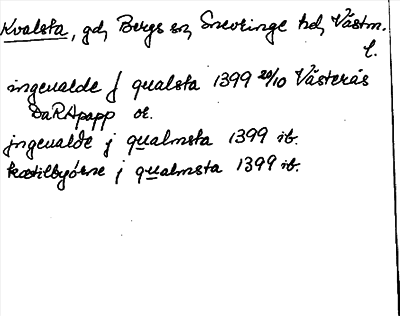 Kvalsta, gd, Bergs sn, Snevringe hd, Västm.
l.
ingeualde j qualsta 1399 20/10 Västerås
DaRApapp or.
jngeualde j qualmsta 1399 ib.
kætilbyórne j qualmsta 1399 ib.